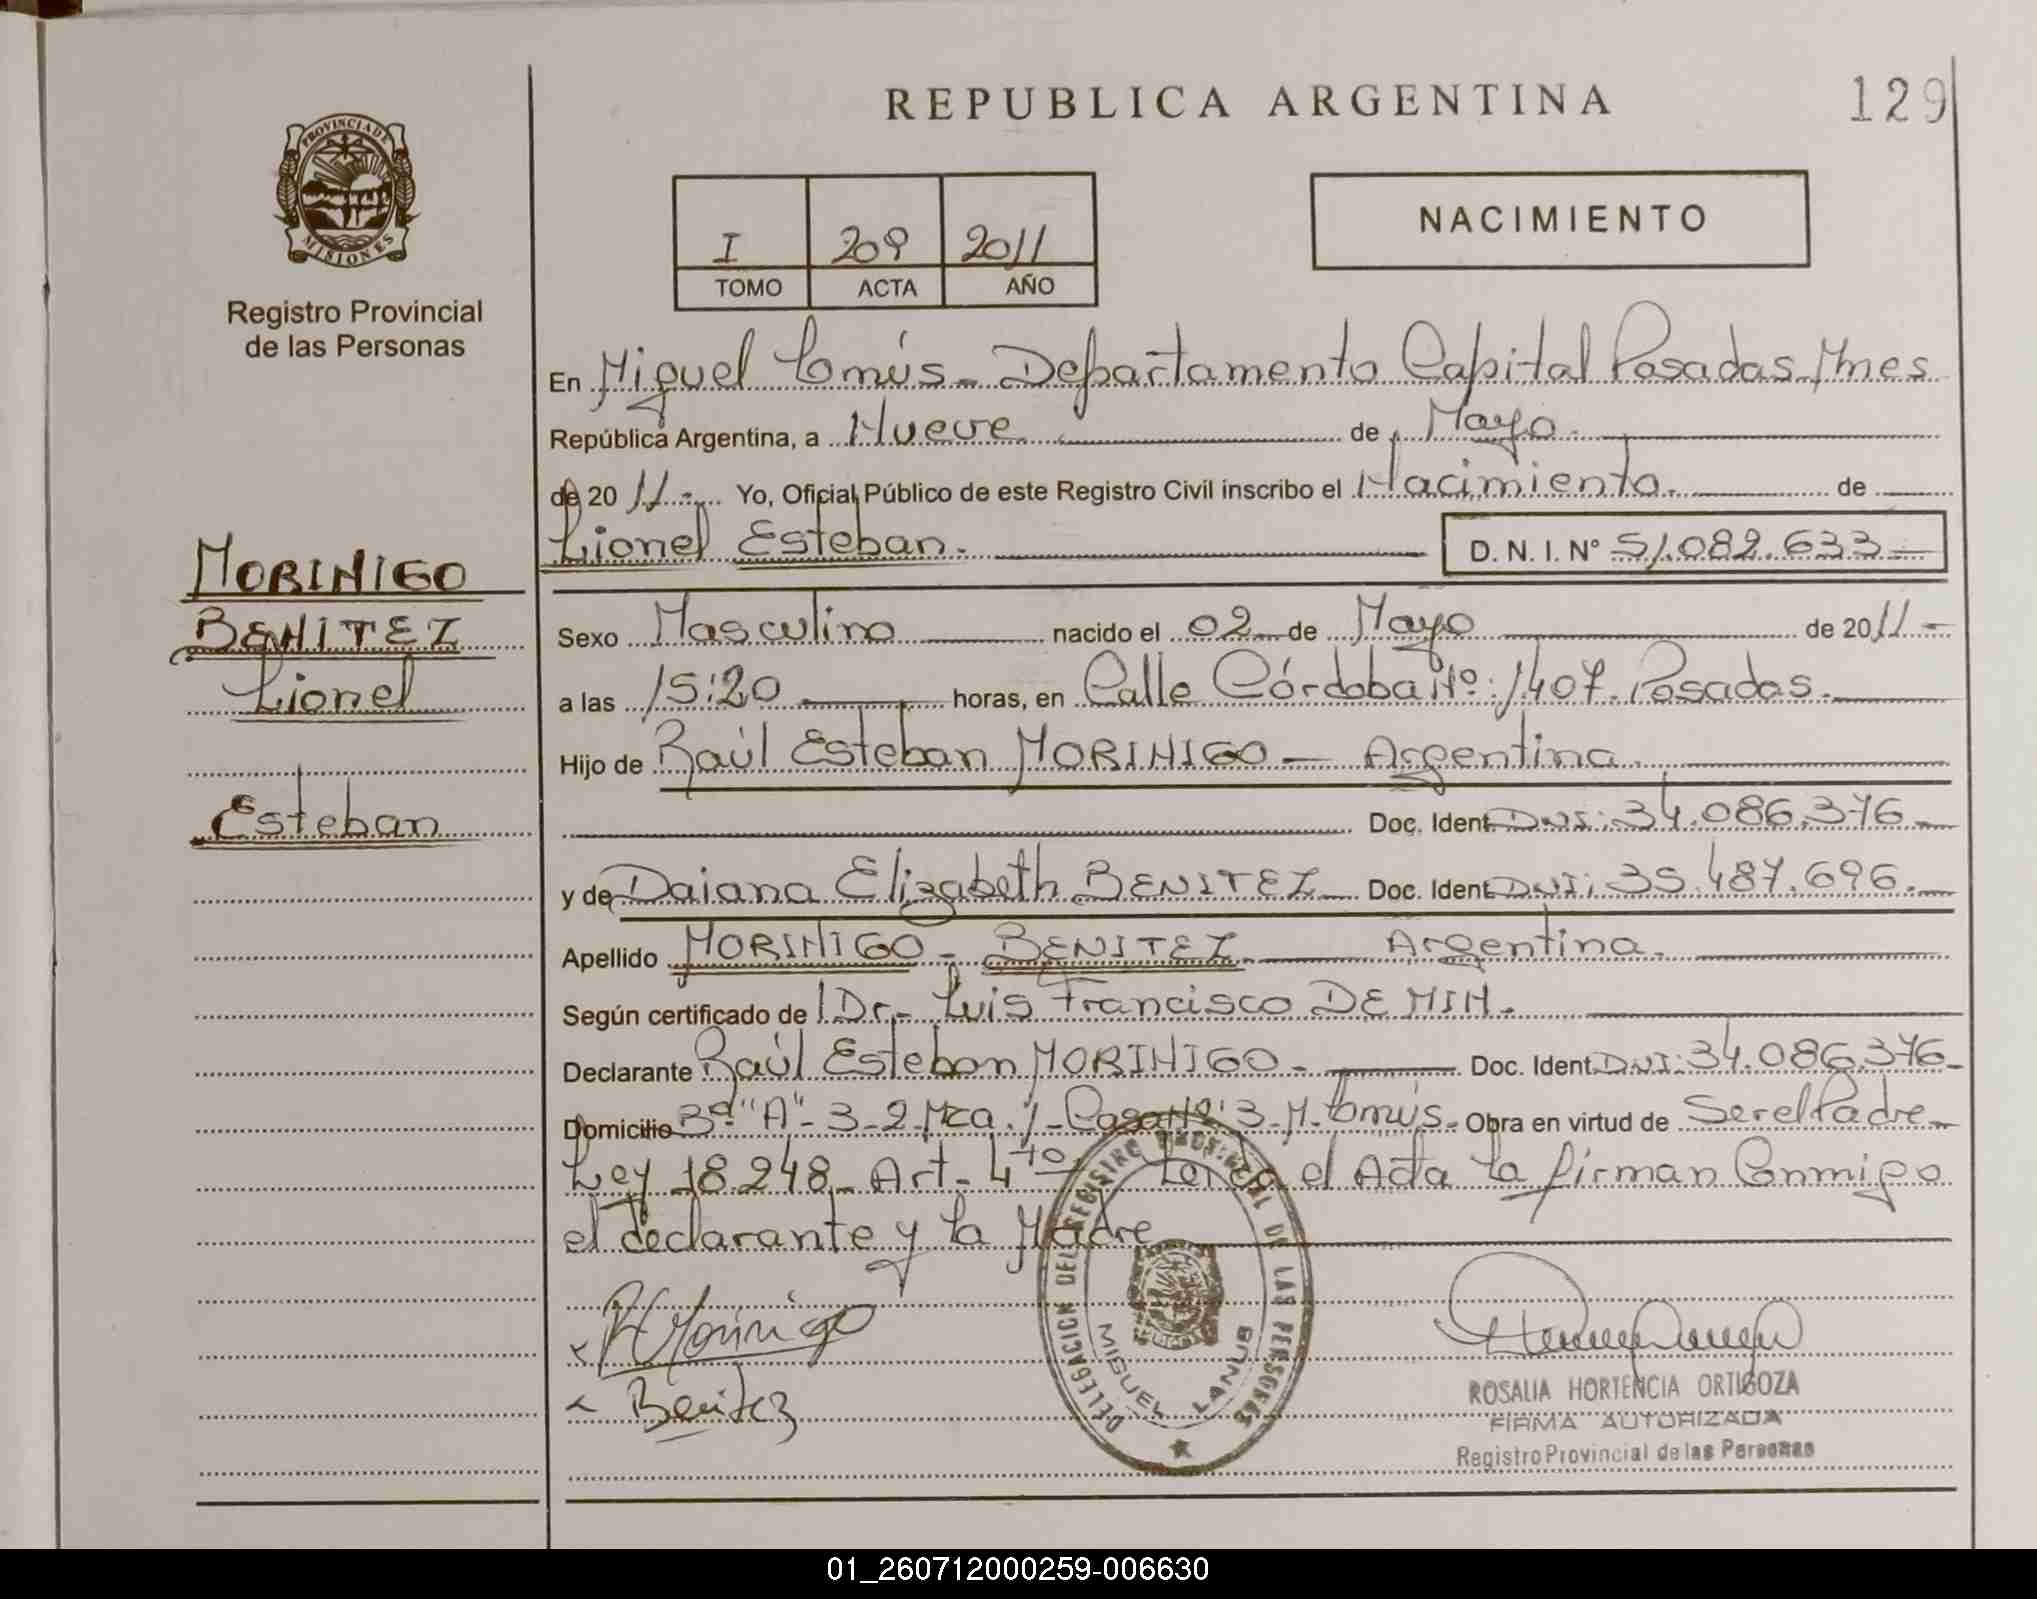 REPUBLICA ARGENTINA
129
PROVINCIA DE
MISIONES
Registro Provincial
de las Personas
I 209 2011
TOMO ACTA AÑO
NACIMIENTO
En Miguel Lanús - Departamento Capital Posadas Mnes
República Argentina, a Nueve de Mayo
de 2011.- Yo, Oficial Público de este Registro Civil inscribo el Nacimiento. de
Lionel Esteban. D. N. I. Nº 51.082.633
MORINIGO
BENITEZ
Lionel
Esteban
Sexo Masculino nacido el 02 de Mayo de 2011-
a las 15:20 horas, en Calle Córdoba Nº: 1407. Posadas.
Hijo de Raúl Esteban MORINIGO - Argentina.
Doc. Ident. DNI: 34.086.376
y de Daiana Elizabeth BENITEZ Doc. Ident. DNI: 35.487.696.
Apellido MORINIGO - BENITEZ Argentina.
Según certificado de Dr. Luis Francisco DE MIN.
Declarante Raúl Esteban MORINIGO - Doc. Ident. DNI: 34.086.376
Domicilio Bº "A" - 3-2 Mza. 1 - Casa Nº: 3 - M. Lanús - Obra en virtud de Ser el Padre
Ley 18.248 - Art. 4to Leída el Acta La firman Conmigo
el declarante y La Madre
DELEGACION DEL REGISTRO PROVINCIAL DE LAS PERSONAS
MIGUEL LANUS
R Morinigo
Benitez
ROSALIA HORTENCIA ORTIGOZA
FIRMA AUTORIZADA
Registro Provincial de las Personas
01_260712000259-006630